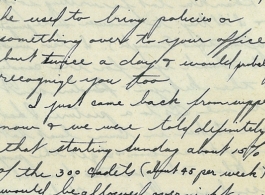 he used to bring policies or
something over to your office
but twice a day & would prob
recognize you too
I just came back from upp
now & we were told definitely
that starting Sunday about 15%
of the 300 cadets (about 45 per week)
would be allowed